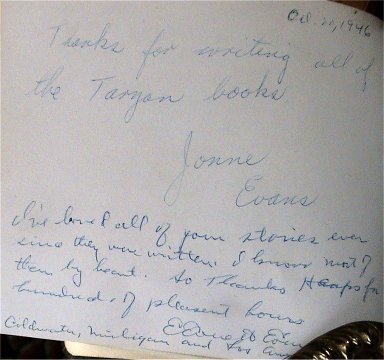 Oct. 21, 1946
Thanks for writing all of
the Tarzan books
Jonne
Evans
I've loved all of your stories ever
since they were written. I know most of
them by heart. So Thanks Heaps for
hundreds of pleasent hours
Coldwater, Michigan and Los